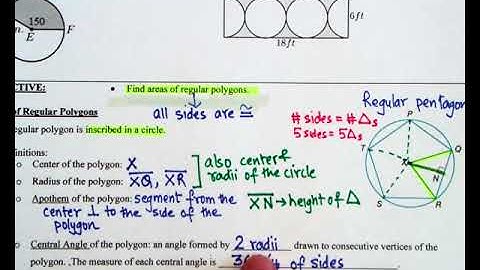 150
E
F
6ft
18ft
CTIVE:
• Find areas of regular polygons.
all sides are ≅
of Regular Polygons
egular polygon is inscribed in a circle.
Regular pentagon
# sides = # Δs
5 sides = 5 Δs
P
T
Q
X
N
S
R
efinitions:
o Center of the polygon: X
o Radius of the polygon: XQ, XR
also center & radius of the circle
o Apothem of the polygon: segment from the
center ⊥ to the side of the
polygon
XN → height of Δ
o Central Angle of the polygon: an angle formed by 2 radii drawn to consecutive vertices of the
polygon. The measure of each central angle is of sides